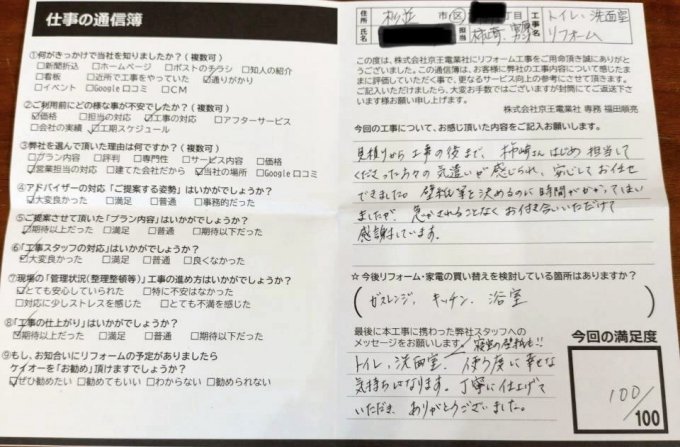 仕事の通信簿
①何がきっかけで当社を知りましたか？（複数可）
□新聞折込　□ホームページ　□ポストのチラシ　□知人の紹介
□看板　□近所で工事をやっていた　☑通りがかり
□イベント　□Google口コミ　□CM
②ご利用前にどの様な事が不安でしたか？（複数可）
☑価格　□担当の対応　☑工事の対応　□アフターサービス
□会社の実績　☑工期スケジュール
③弊社を選んで頂いた理由は何ですか？（複数可）
□プラン内容　□評判　□専門性　□サービス内容　□価格
☑営業担当の対応　□建てた会社だから　☑当社の場所　□Google口コミ
④アドバイザーの対応「ご提案する姿勢」はいかがでしょうか？
☑大変良かった　□満足　□普通　□事務的だった
⑤ご提案させて頂いた「プラン内容」はいかがでしょうか？
☑期待以上だった　□満足　□普通　□期待以下だった
⑥「工事スタッフの対応」はいかがでしょうか？
☑大変良かった　□満足　□普通　□良くなかった
⑦現場の「管理状況（整理整頓等）」工事の進め方はいかがでしょうか？
☑とても安心していられた　□特に不安はなかった
□対応に少しストレスを感じた　□とても不満を感じた
⑧「工事の仕上がり」はいかがでしょうか？
☑期待以上だった　□満足　□普通　□期待以下だった
⑨もし、お知合いにリフォームの予定がありましたら
ケイオーを「お勧め」頂けますでしょうか？
☑ぜひ勧めたい　□勧めてもいい　□わからない　□勧められない
住所　杉並　市区　丁目　工事名　トイレ、洗面室
氏名　担当　柿﨑　リフォーム
この度は、株式会社京王電業社にリフォーム工事をご用命頂き誠にありが
とうございました。この通信簿は、お客様に弊社の工事内容について感じたま
まに評価していただく事で、更なるサービス向上の参考にさせて頂きます。
ご記入いただけましたら、大変お手数ではございますが簡封にてご返送下さ
います様お願い申し上げます。
株式会社京王電業社 専務 福田順亮
今回の工事について、お感じ頂いた内容をご記入お願いします。
見積りから工事の後まで、柿崎さんはじめ担当して
くださった方々の気遣いが感じられ、安心してお任せ
できました。壁紙等を決めるのに時間がかかってしまい
ましたが、急かされることなくお付き合いいただけて
感謝しています。
☆今後リフォーム・家電の買い替えを検討している箇所はありますか？
（ガスレンジ、キッチン、浴室）
最後に本工事に携わった弊社スタッフへの
メッセージをお願いします。
寝室の壁紙も!!
トイレ、洗面室、使う度に幸せな
気持ちになります。丁寧に仕上げて
いただき、ありがとうございました。
今回の満足度
100/100